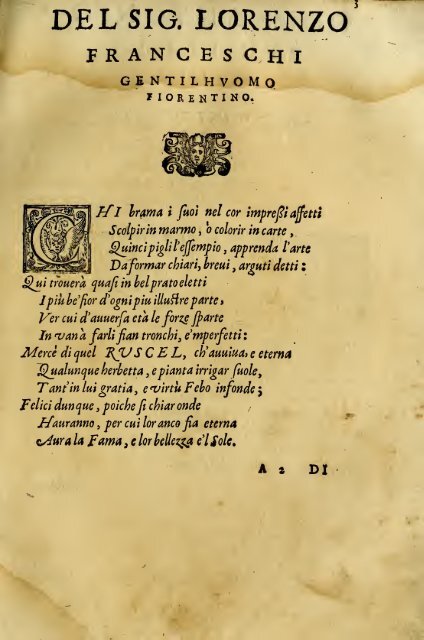 3
DEL SIG. LORENZO
FRANCESCHI
GENTILHVOMO
FIORENTINO.
CHI brama i ſuoi nel cor impreßi affetti
Scolpir in marmo, ò colorir in carte,
Quinci pigli l'eſſempio, apprenda l'arte
Da formar chiari, breui, arguti detti:
Qui trouerà quaſi in bel prato eletti
I più be' fior d'ogni piu illuſtre parte,
Ver cui d'auuerſa età le forze ſparte
In van à farli fian tronchi, e'mperfetti:
Mercè di quel RVSCEL, ch'auuiua, e eterna
Qualunque herbetta, e pianta irrigar ſuole,
Tant'in lui gratia, e virtù Febo infonde;
Felici dunque, poiche ſi chiar onde
Hauranno, per cui lor anco ſia eterna
Aura la Fama, e lor bellezza e'l Sole.
A 2 DI